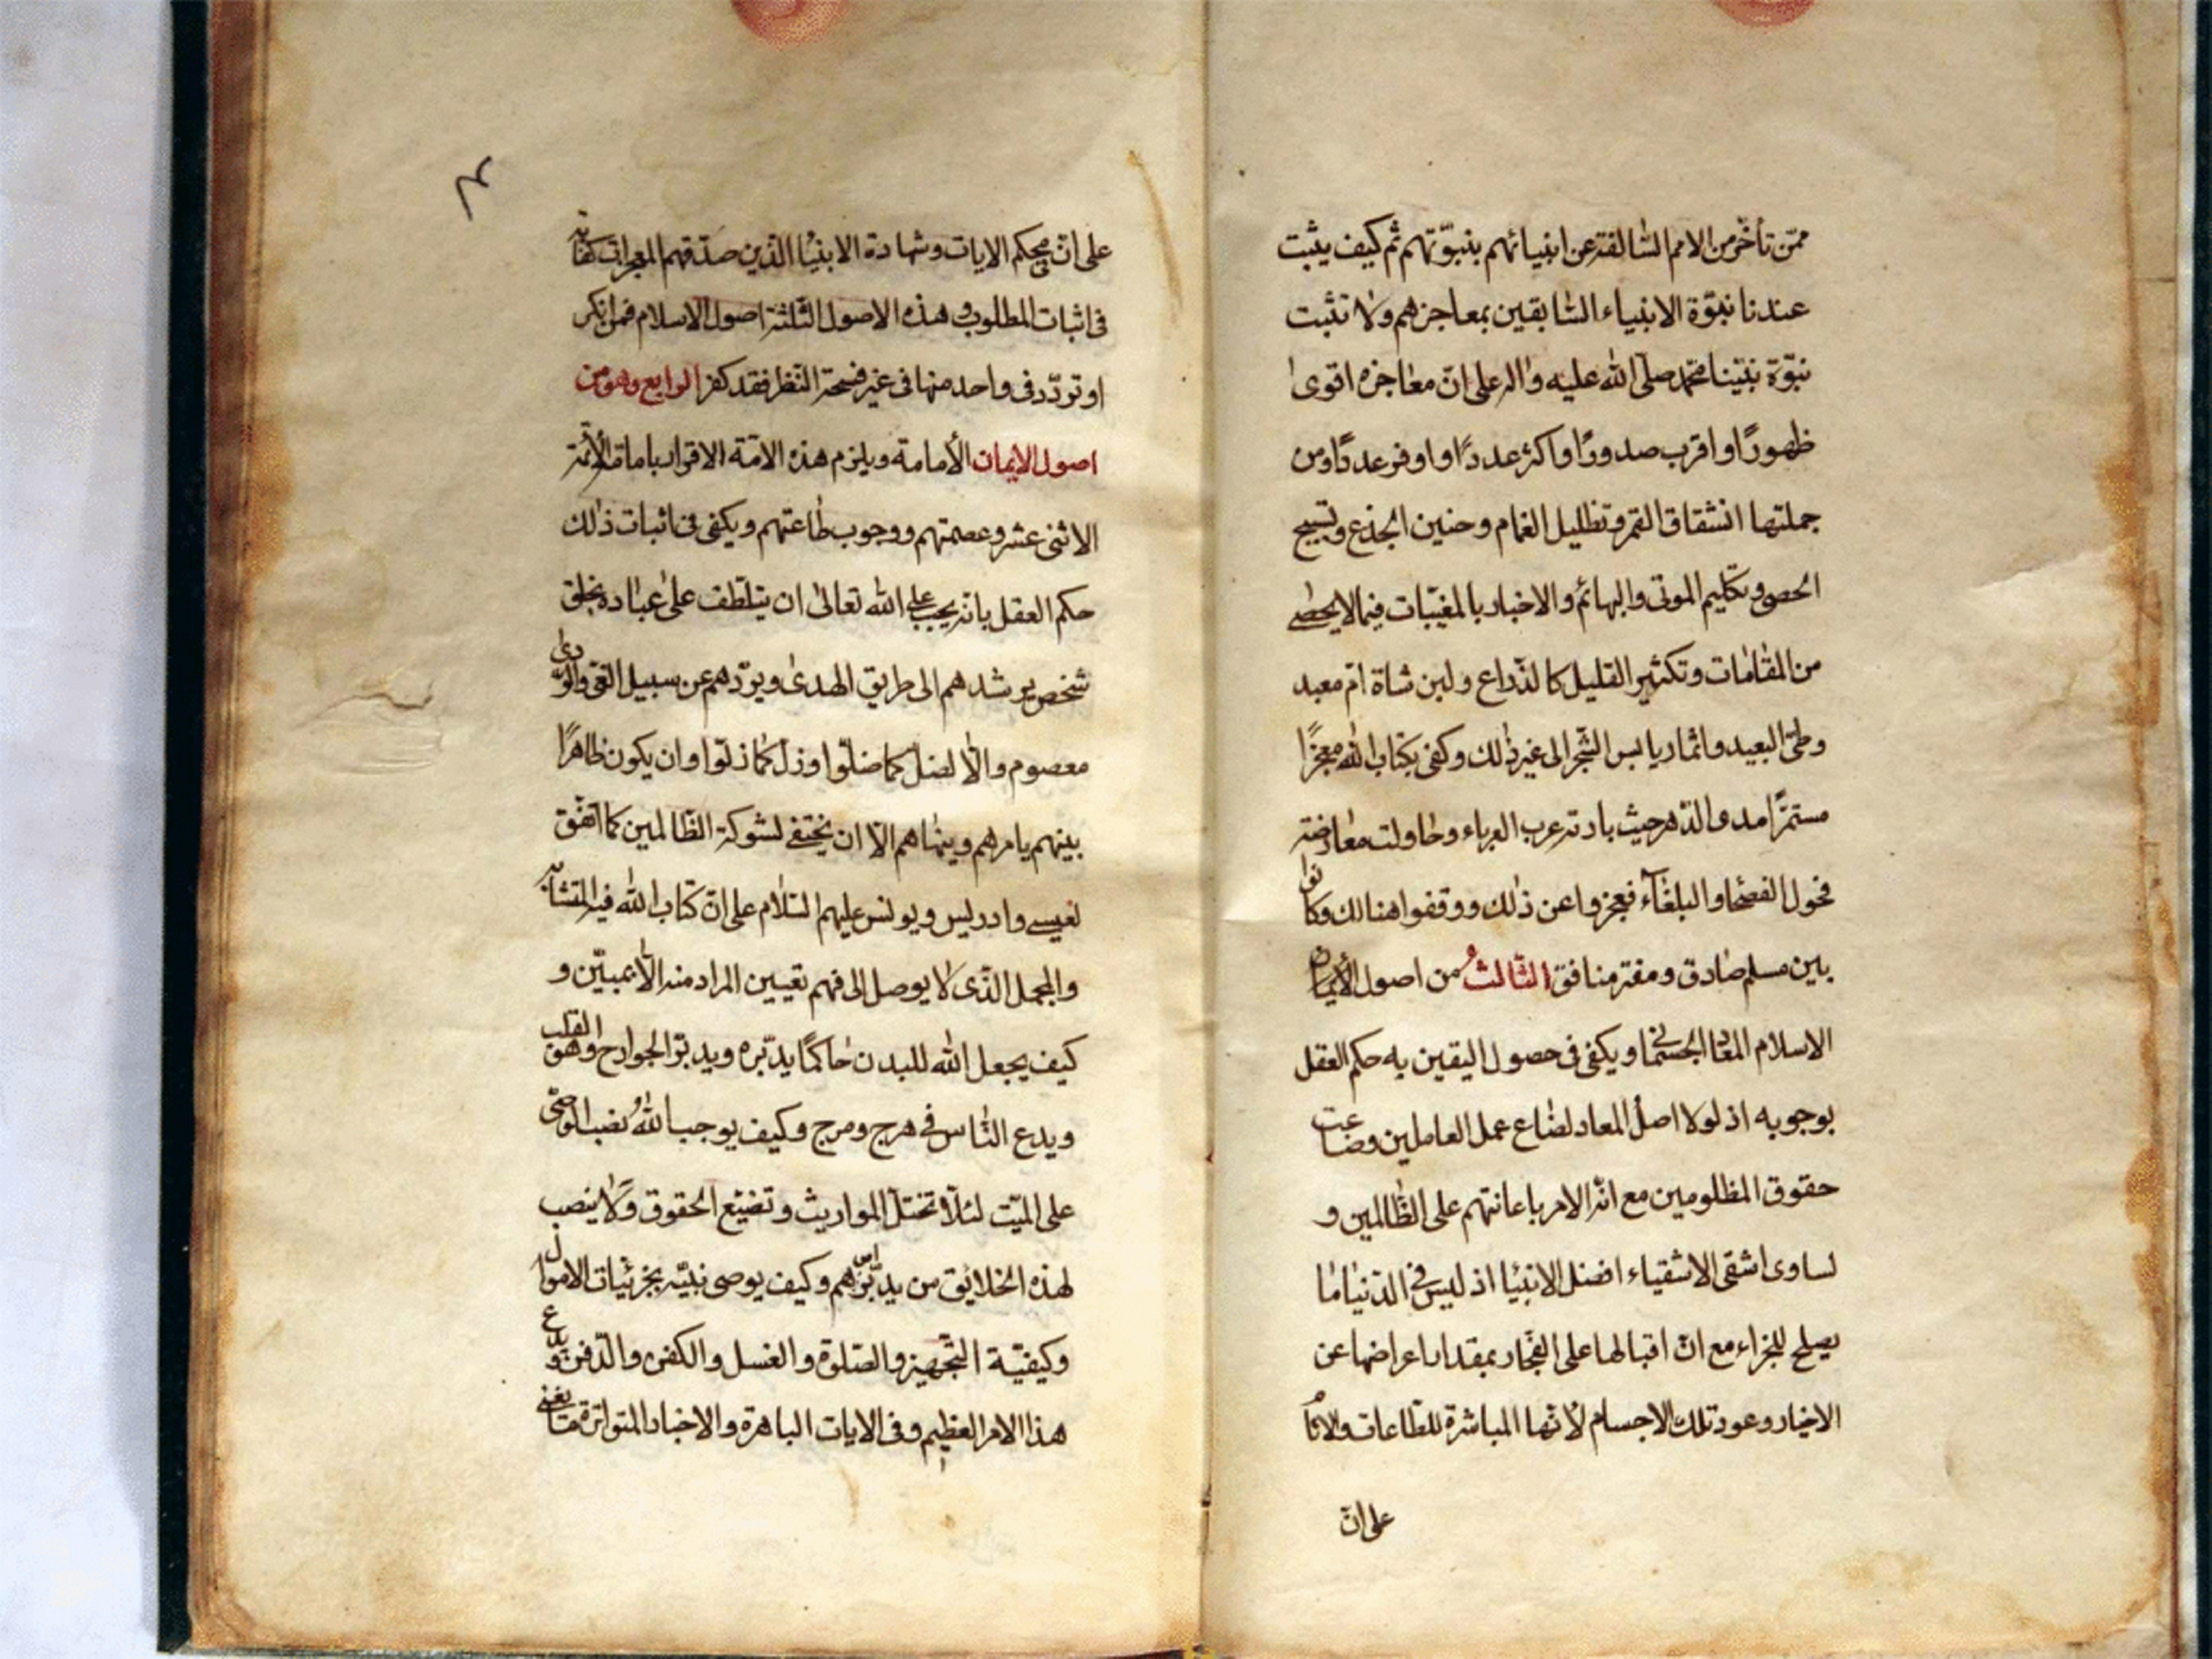 ممّن تأخّر من الامم السّالفة عن انبيائهم بنبوّتهم ثم كيف يثبت
عندنا نبوّة الانبياء السّابقين بمعاجزهم ولا تثبت
نبوّة نبيّنا محمّد صلى الله عليه واله على انّ معاجزه اقوى
ظهورًا واقرب صدورًا واكثر عددًا واوفر عددًا ومن
جملتها انشقاق القمر وتظليل الغمام وحنين الجذع وتسبيح
الحصى وتكليم الموتى والبهائم والاخبار بالمغيّبات فيما لا يحصى
من المقامات وتكثير القليل كالذّراع ولبن شاة امّ معبد
وطىّ البعيد واثمار يابس الشّجر الى غير ذلك وكفى بكتاب الله معجزًا
مستمرًّا مدى الدّهر حيث بادته عرب العرباء وحاولت معارضته
فحول الفصحا والبلغآء فعجزوا عن ذلك ووقفوا هنالك وكانوا
بين مسلم صادق ومفتر منافق الثّالث من اصول الأيمان
الاسلام المعاد الجسمانى ويكفى فى حصول اليقين به حكم العقل
بوجوبه اذ لولا اصل المعاد لضاع عمل العاملين وضاعت
حقوق المظلومين مع انّه الامر باعانتهم على الظّالمين و
لساوى اشقى الاشقياء افضل الانبيا اذ ليس فى الدّنيا ما
يصلح للجزاء مع انّ اقبالها على الفجّار بمقدار اعراضها عن
الاخيار وعود تلك الاجسام لأنّها المباشرة للطّاعات والاثام
على انّ
على انّ محكم الايات وشهادة الانبيا الذين صدّقهم المعجزات كفاية
فى اثبات المطلوب وهذه الاصول الثّلثة اصول الاسلام فمن انكر
او تردّد فى واحد منها فى غير فسحة النّظر فقد كفر الرابع وهو من
اصول الايمان الأمامة ويلزم هذه الامّة الاقرار بامامة الأئمّة
الاثنى عشر وعصمتهم ووجوب طاعتهم ويكفى فى اثبات ذلك
حكم العقل بانّه يجب على الله تعالى ان يتلطّف على عباده بخلق
شخص يرشدهم الى طريق الهدى ويردّهم عن سبيل الغى والرّدى
معصوم والّا لضلّ كما ضلّوا وزلّ كما زلّوا وان يكون ظاهرًا
بينهم يامرهم وينهاهم الّا ان يختفى لشوكة الظّالمين كما اتّفق
لعيسى وادريس ويونس عليهم السّلام على انّ كتاب الله فيه المتشابه
والمجمل الذّى لا يوصل الى فهم تعيين المراد منه الّا بمبيّن و
كيف يجعل الله للبدن حاكمًا يدبّره ويدبّر الجوارح وهو القلب
ويدع النّاس فى هرج ومرج وكيف يوجب الله نصب الوصّى
على الميّت لئلّا تختلّ المواريث وتضيّع الحقوق ولا ينصب
لهذه الخلايق من يدبّر امرهم وكيف يوصى نبيّه بجزئيّات الاموال
وكيفيّة التّجهيز والصّلوة والغسل والكفن والدّفن ويدع
هذا الامر العظيم وفى الايات الباهرة والاخبار المتواترة ما يغنى